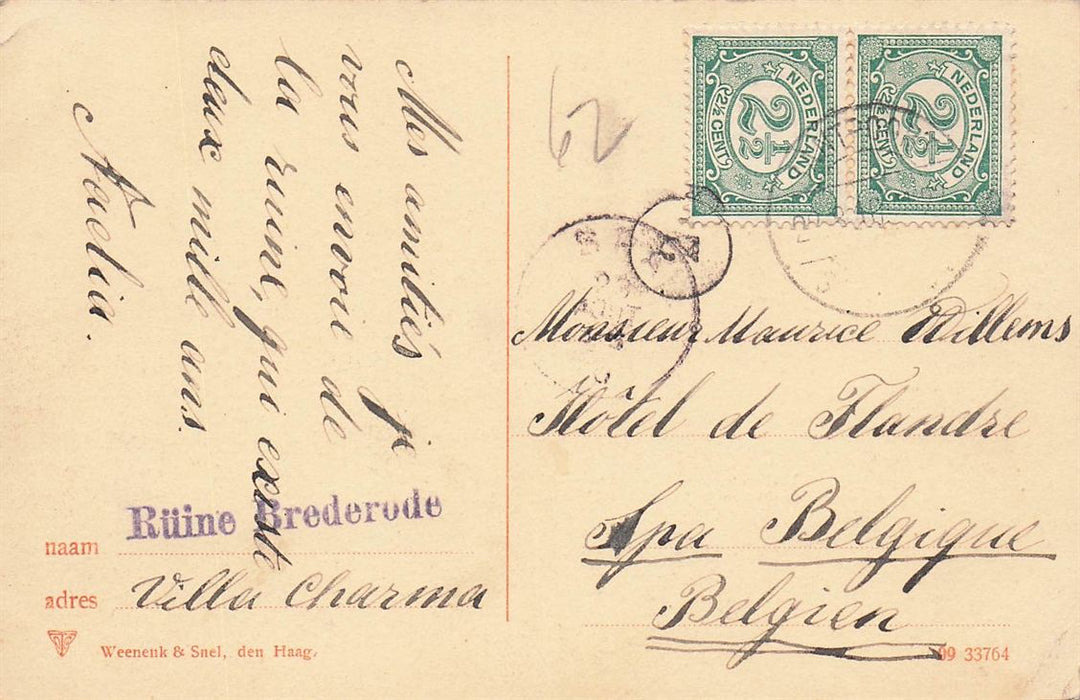 Mes amitiés je
vous envoie de
la ruine, qui existe
deux mille ans.
Nadia.
Rüine Brederode
naam
adres Villa Charma
Weenenk & Snel, den Haag.
62
NEDERLAND
2½
2½ CENT
NEDERLAND
2½
2½ CENT
Monsieur Maurice Willems
Hôtel de Flandre
Spa Belgique
Belgien
09 33764